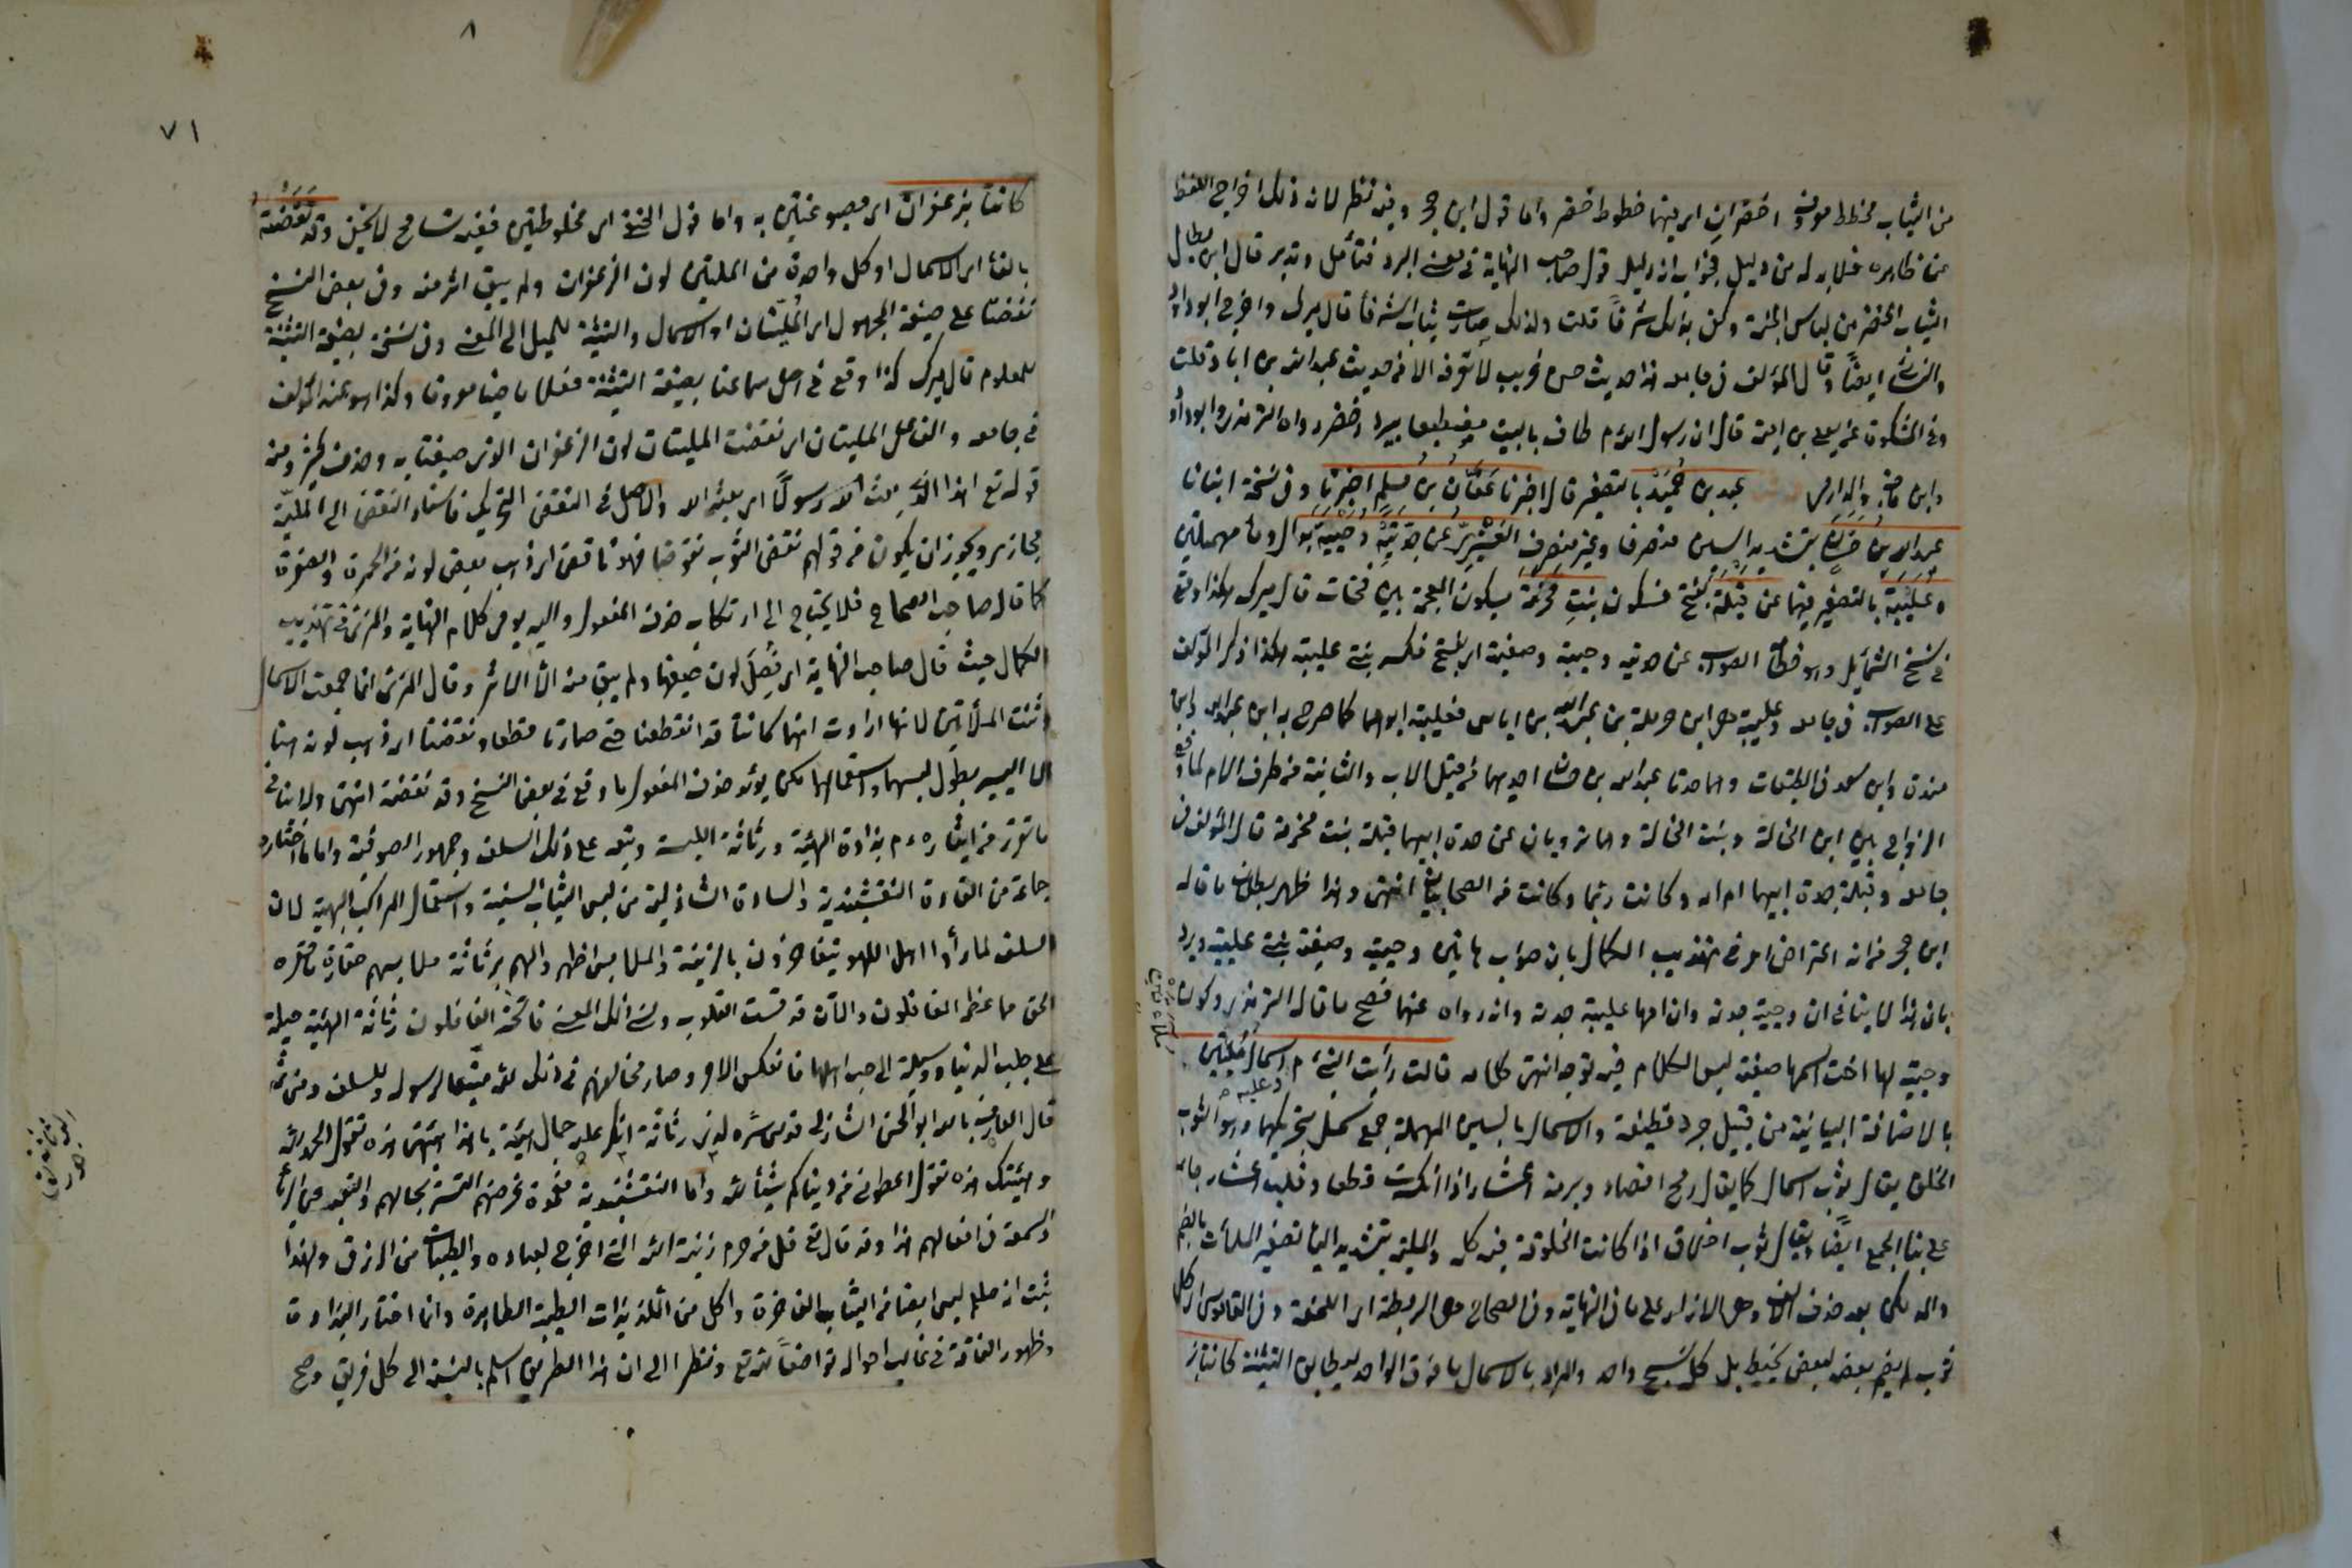 من الثياب مخطط موشى اخضران اى فيهما خطوط خضر واما قول ابن حجر وفيه نظر لان ذلك اخراج اللفظ
عن ظاهره فلا بد له من دليل فجوابه انه دليل قول صاحب النهاية فى معنى البرد فتأمل وتدبر قال ابن بطال
الثياب الخضر من لباس الجنة وكفى بذلك شرفا قلت ولذلك صارت ثياب الشرفا قال ميرك واخرج ابو داود
والنسائى ايضا وقال المؤلف فى جامعه هذا حديث حسن غريب لا نعرفه الا من حديث عبد الله بن اياد قلت
وفى المشكوة عن يعلى بن امية قال ان رسول الله م طاف بالبيت مضطبعا ببرد اخضر رواه الترمذى وابو داود
وابن ماجة والدارمى عبد بن حميد بالتصغير قال اخبرنا عفان بن مسلم اخبرنا وفى نسخة انبانا
عبد الله بن حسان بتشديد السين منصرفا وغير منصرف العنبرى عن جدتيه دحيبة بدال وحاء مهملتين
وعليبة بالتصغير فيهما عن قيلة بفتح فسكون بنت مخرمة بسكون المعجمة بين فتحات قال ميرك هكذا وقع
فى نسخ الشمائل وهو خطا والصواب عن جدتيه دحيبة وصفية اى بفتح فكسر بنتى عليبة هكذا ذكر المؤلف
على الصواب فى جامعه وعليبة هو ابن حرملة بن عبد الله بن اياس فعليبة ابوهما كما صرح به ابن عبد البر وابن
مندة وابن سعد فى الطبقات وهما جدتا عبد الله بن حسان احديهما من قبل الاب والثانية من طرف الام لما وقع
الزواج بين ابن الخالة وبنت الخالة وهما ترويان عن جدة ابيهما قيلة بنت مخرمة قال المؤلف فى
جامعه وقيلة جدة ابيهما ام امه وكانت ربتهما وكانت من الصحابيات انتهى وبهذا ظهر بطلان ما قاله
ابن حجر من انه اعترض امر فى تهذيب الكمال بان صوابه هاتين دحيبة وصفية بنتى عليبة ويرد
بان هذا لا ينافى ان دحيبة جدته وان امها عليبة جدته وانه رواه عنهما فصح ما قاله الترمذى وكون
دحيبة لها اخت اسمها صفية ليس الكلام فيه توجه انتهى كلامه قالت رأيت النبى م وعليه اسمال مليتين
بالاضافة البيانية من قبيل جرد قطيفة والاسمال بالسين المهملة جمع سمل بتحريكهما وهو الثوب
الخلق يقال ثوب اسمال كما يقال رمح اقصاد وبرمة اعشار اذا انكسرت قطعا وقلب اعشار جاء
على بناء الجمع ايضا ويقال ثوب اخلاق اذا كانت الخلوقة فيه كله والملية بتشديد الياء تصغير الملاءة بالضم
والمد لكن بعد حذف الالف وهى الازار على ما فى النهاية وفى الصحاح هى الريطة اى الملحفة وفى القاموس هى كل
ثوب لم يضم بعضه لبعض بخيط بل كل نسج واحد والمراد بالاسمال ما فوق الواحد ليطابق التثنية كانتا بز
كانتا بزعفران اى مصبوغتين به واما قول الحنفى اى مخلوطتين ففيه تسامح لا يخفى وقد نفضته
بالفاء اى الاسمال او كل واحدة من المليتين لون الزعفران ولم يبق اثر منه وفى بعض النسخ
نفضتا على صيغة المجهول اى المليتان او الاسمال والتثنية للميل الى المعنى وفى نسخة بصيغة التثنية
للمعلوم قال ميرك كذا وقع فى اصل سماعنا بصيغة التثنية فعلا ماضيا معروفا وكذا هو عند المؤلف
فى جامعه والفاعل المليتان اى نفضت المليتان لون الزعفران الذى صبغتا به وحذف كثير ومنه
قوله تع اهذا الذى بعث الله رسولا اى بعثه الله والاصل فى النفض التحريك فاسناد النفض الى الملية
مجازى ويجوز ان يكون من قولهم نفض الثوب نفوضا فهو نافض اى ذهب بعض لونه من الحمرة والصفرة
كما قال صاحب الصحاح فلا يحتاج الى ارتكاب حذف المفعول واليه يومى كلام النهاية والمزى فى تهذيب
الكمال حيث قال صاحب النهاية اى نصل لون صبغهما ولم يبق منه الا الاثر وقال المزى انما جمعت الاسمال
وثنت الملاتين لانها ارادت انهما كانتا قد انقطعتا حتى صارتا قطعا ونفضتا اى ذهب لونه منهما
الا اليسير بطول لبسهما واستعمالهما لكن يؤيد حذف المفعول ما وقع فى بعض النسخ وقد نفضته انتهى ولا ينافى
ما تقرر من ايثاره م بذاذة الهيئة ورثاثة اللبسة وتبعه على ذلك السلف وجمهور الصوفية واما ما اختاره
جماعة من القادة النقشبندية والسادة الشاذلية من لبس الثياب السنية واستعمال المراكب البهية لان
السلف لما رأوا اهل اللهو يتفاخرون بالزينة والملابس اظهروا لهم برثاثة ملابسهم حقارة ما حقره
الحق مما عظمه الغافلون والآن قد قست القلوب ونسى ذلك المعنى فاتخذ الغافلون رثاثة الهيئة حيلة
على جلب الدنيا ووسيلة الى حب اهلها فانعكس الامر وصار مخالفهم فى ذلك لله متبعا لرسوله وللسلف ومن ثم
قال العارف بالله ابو الحسن الشاذلى قدس سره لذى رثاثة انكر عليه جمال هيئته يا هذا هيئتى هذه تقول الحمد لله
وهيئتك هذه تقول اعطونى من دنياكم شيئا لله واما النقشبندية قدوة غرضهم التستر بحالهم والتبعد عن الرياء
والسمعة فى افعالهم هذا وقد قال تع قل من حرم زينة الله التى اخرج لعباده والطيبات من الرزق ولهذا
ثبت انه صلعم لبس ايضا من الثياب الفاخرة واكل من اللذيذات الطيبة الطاهرة وانما اختار البذاذة
وظهور الفاقة فى غالب احواله تواضعا لله تع ونظرا الى ان هذا الطريق اسلم بالنسبة الى كل فريق وصح
٨
٧١